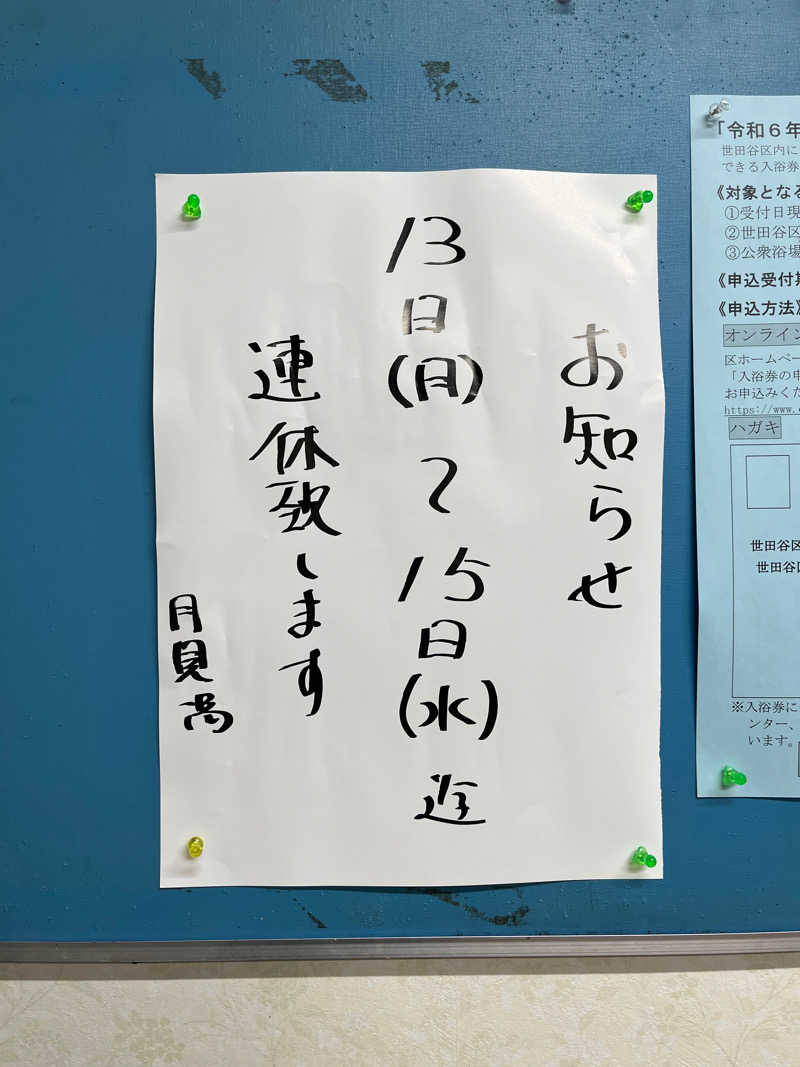 お知らせ
13日(月)〜15日(水)迄
連休致します
月見湯
「令和６年
世田谷区内に
できる入浴券
《対象となる
①受付日現
②世田谷区
③公衆浴場
《申込受付期
《申込方法》
オンライン
区ホームペー
「入浴券の申
お申込みくだ
https://www.
ハガキ
世田谷区
世田谷区
※入浴券に
ンター、
います。